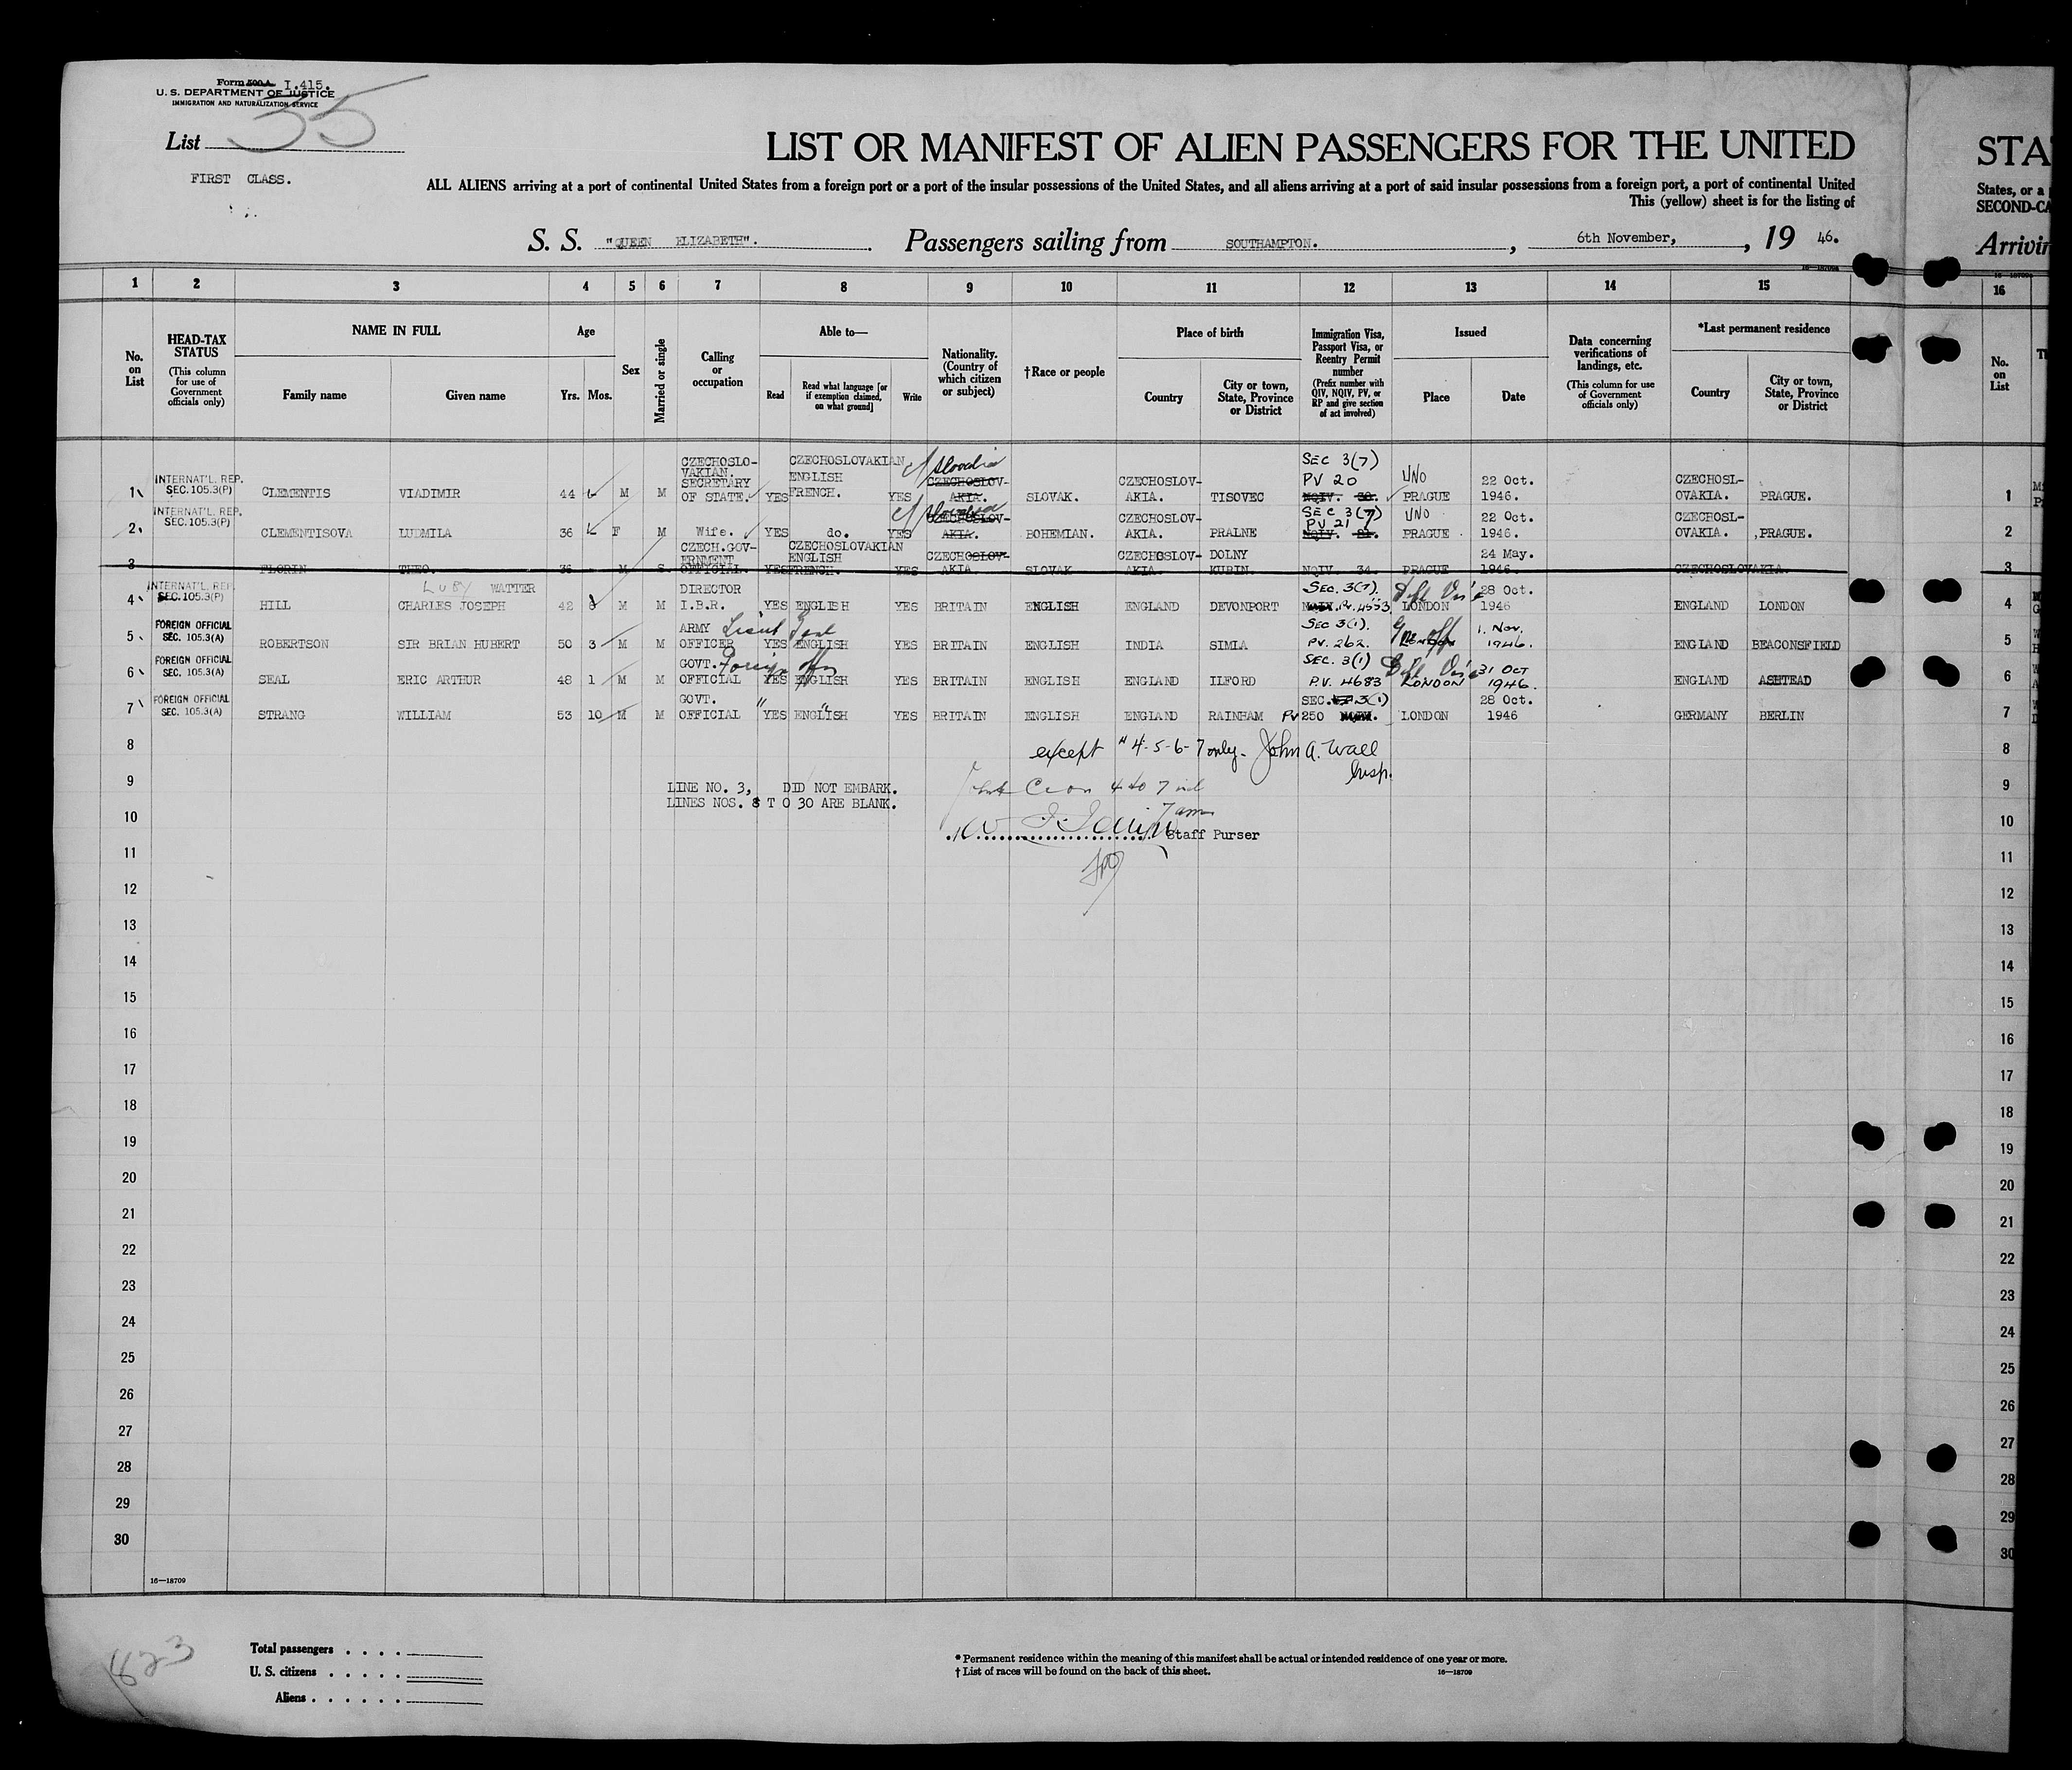 Form 500 A I.415.
U. S. DEPARTMENT OF JUSTICE
IMMIGRATION AND NATURALIZATION SERVICE
List 35
FIRST CLASS.
LIST OR MANIFEST OF ALIEN PASSENGERS FOR THE UNITED
STA
ALL ALIENS arriving at a port of continental United States from a foreign port or a port of the insular possessions of the United States, and all aliens arriving at a port of said insular possessions from a foreign port, a port of continental United
States, or a
This (yellow) sheet is for the listing of
SECOND-CA
S. S. "QUEEN ELIZABETH". Passengers sailing from SOUTHAMPTON. , 6th November, , 19 46.
Arrivin
16—18709
1 2 3 4 5 6 7 8 9 10 11 12 13 14 15 16
No. on List
HEAD-TAX STATUS (This column for use of Government officials only)
NAME IN FULL
Family name Given name
Age
Yrs. Mos.
Sex
Married or single
Calling or occupation
Able to—
Read Read what language [or if exemption claimed, on what ground] Write
Nationality. (Country of which citizen or subject)
†Race or people
Place of birth
Country City or town, State, Province or District
Immigration Visa, Passport Visa, or Reentry Permit number (Prefix number with QIV, NQIV, PV, or RP and give section of act involved)
Issued
Place Date
Data concerning verifications of landings, etc. (This column for use of Government officials only)
*Last permanent residence
Country City or town, State, Province or District
No. on List
1 INTERNAT'L. REP. SEC.105.3(P) CLEMENTIS VIADIMIR 44 M M CZECHOSLO-VAKIAN. SECRETARY OF STATE. YES CZECHOSLOVAKIAN ENGLISH FRENCH. YES CZECHOSLOV-AKIA. SLOVAK. CZECHOSLOV-AKIA. TISOVEC SEC 3(7) PV 20 NQIV. 20. UNO PRAGUE 22 Oct. 1946. CZECHOSL-OVAKIA. PRAGUE. 1
2 INTERNAT'L. REP. SEC.105.3(P) CLEMENTISOVA LUDMILA 36 F M Wife. YES do. YES CZECHOSLOV-AKIA. BOHEMIAN. CZECHOSLOV-AKIA. PRALNE SEC 3(7) PV 21 NQIV. 21. UNO PRAGUE 22 Oct. 1946. CZECHOSL-OVAKIA. PRAGUE. 2
3 FLORIN THEO. 36 M S CZECH.GOV-ERNMENT OFFICIAL. YES CZECHOSLOVAKIAN ENGLISH FRENCH. YES CZECHOSLOV-AKIA SLOVAK CZECHOSLOV-AKIA DOLNY KUBIN. NQIV. 34. PRAGUE 24 May. 1946. CZECHOSLOVAKIA. 3
4 INTERNAT'L. REP. SEC.105.3(P) HILL LUBY WATTER CHARLES JOSEPH 42 M M DIRECTOR I.B.R. YES ENGLISH YES BRITAIN ENGLISH ENGLAND DEVONPORT SEC. 3(7). LONDON 28 Oct. 1946 ENGLAND LONDON 4
5 FOREIGN OFFICIAL SEC. 105.3(A) ROBERTSON SIR BRIAN HUBERT 50 3 M M ARMY OFFICER YES ENGLISH YES BRITAIN ENGLISH INDIA SIMLA SEC 3(1). PV. 262. LONDON 1. Nov. 1946. ENGLAND BEACONSFIELD 5
6 FOREIGN OFFICIAL SEC. 105.3(A) SEAL ERIC ARTHUR 48 1 M M GOVT. OFFICIAL YES ENGLISH YES BRITAIN ENGLISH ENGLAND ILFORD SEC. 3(1) P.V. 4683 LONDON 31 OCT 1946. ENGLAND ASHTEAD 6
7 FOREIGN OFFICIAL SEC. 105.3(A) STRANG WILLIAM 53 10 M M GOVT. OFFICIAL " YES ENGLISH YES BRITAIN ENGLISH ENGLAND RAINHAM SEC. 3(1) PV 250 LONDON 28 Oct. 1946 GERMANY BERLIN 7
8 except # 4-5-6-7 only. John A. Wall 8
Insp.
9 LINE NO. 3, DID NOT EMBARK. 4 to 7 9
LINES NOS. 8 T O 30 ARE BLANK.
10 Staff Purser 10
11 11
12 12
13 13
14 14
15 15
16 16
17 17
18 18
19 19
20 20
21 21
22 22
23 23
24 24
25 25
26 26
27 27
28 28
29 29
30 30
16—18709
823
Total passengers . . . .
U. S. citizens . . . . .
Aliens . . . . . .
* Permanent residence within the meaning of this manifest shall be actual or intended residence of one year or more.
† List of races will be found on the back of this sheet. 16—18709